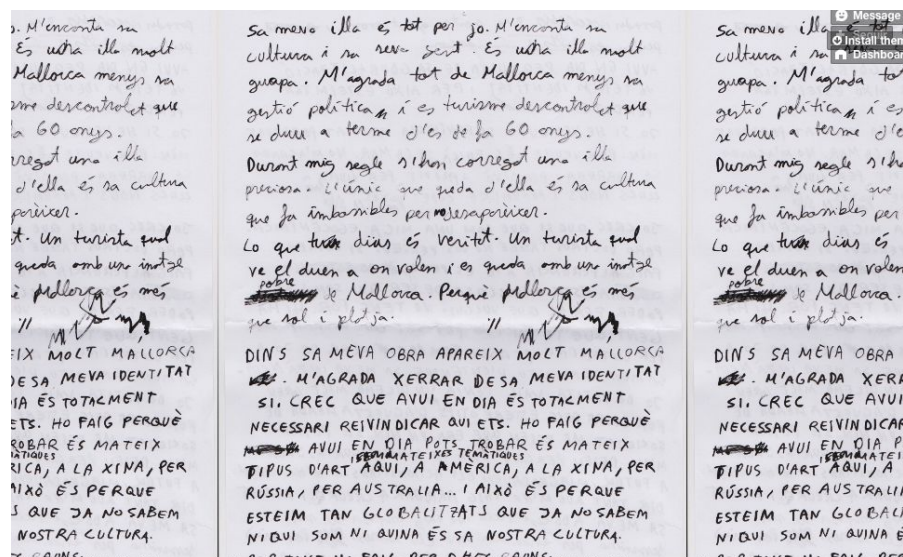 o. M'encanta sa
És ustra illa molt
Mallorca menys sa
turisme descontrolat que
fa 60 anys.
carregat una illa
d'ella és sa cultura
Un turista qual
queda amb un inatge
Mallorca és més
MOLT MALLORCA
DE SA MEVA IDENTITAT
DIA ÉS TOTALMENT
ETS. HO FAIG PERQUÈ
TROBAR ÉS MATEIX
TEMÀTIQUES
A LA XINA, PER
AIXÒ ÉS PERQUE
QUE JA NO SABEM
NOSTRA CULTURA.
Sa meva illa és tot per jo. M'encanta sa
cultura i sa seva gent. És illa molt
guapa. M'agrada tot de Mallorca menys sa
gestió política i es turisme descontrolat que
se duu a terme d'es de fa 60 anys.
Durant mig segle s'han carregat una illa
preciosa. L'únic que queda d'ella és sa cultura
que fa imbossibles per no desaparèixer.
Lo que dius és veritat. Un turista qual
ve el duen a on volen i es queda amb un inatge
pobre
de Mallorca. Perquè Mallorca és més
que sol i platja.
DINS SA MEVA OBRA APAREIX MOLT MALLORCA
. M'AGRADA XERRAR DE SA MEVA IDENTITAT
SI. CREC QUE AVUI EN DIA ÉS TOTALMENT
NECESSARI REIVINDICAR QUI ETS. HO FAIG PERQUÈ
AVUI EN DIA POTS TROBAR ÉS MATEIX
MATEIXES TEMÀTIQUES
TIPUS D'ART AQUI, A AMÈRICA, A LA XINA, PER
RÚSSIA, PER AUSTRALIA... I AIXÒ ÉS PERQUE
ESTEIM TAN GLOBALITZATS QUE JA NO SABEM
NI QUI SOM NI QUINA ÉS SA NOSTRA CULTURA.
Message
Install
Sa meva illa és tot
cultura i sa
guapa. M'agrada tot
gestió política i es
se duu a terme d'es
Durant mig segle s'han
preciosa. L'únic que
que fa imbossibles per
Lo que dius és
ve el duen a on volen
pobre
de Mallorca.
que sol i platja.
DINS SA MEVA OBRA
. M'AGRADA
SI. CREC QUE AVUI
NECESSARI REIVINDICAR
AVUI EN DIA
TIPUS D'ART AQUI, A
RÚSSIA, PER
ESTEIM TAN
NI QUI SOM NI QUINA